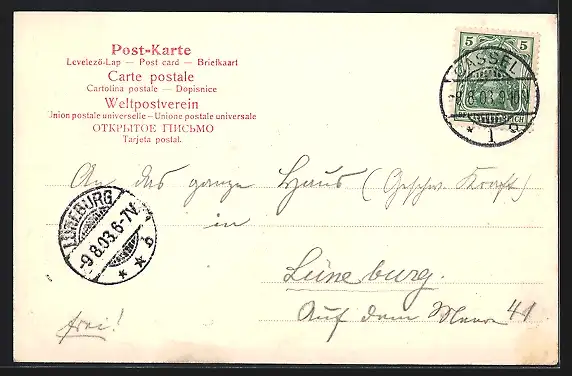 Post-Karte
Levelező-Lap — Post card — Briefkaart
Carte postale
Cartolina postale — Dopisnice
Weltpostverein
Union postale universelle – Unione postale universale
ОТКРЫТОЕ ПИСЬМО
Tarjeta postal.
5 5
CASSEL
8.8.03.9
* 1
An das ganze Haus (Geschw. Kraft)
in
Lüneburg.
Auf dem Meere 41
frei!
LÜNEBURG
-9 8.03.6-7V.
* * b